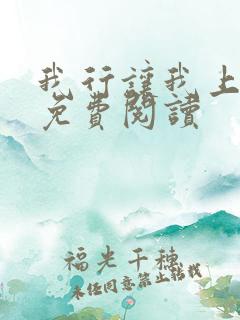 我行讓我上
免費閱讀
福光千穗
未任同意禁止転載